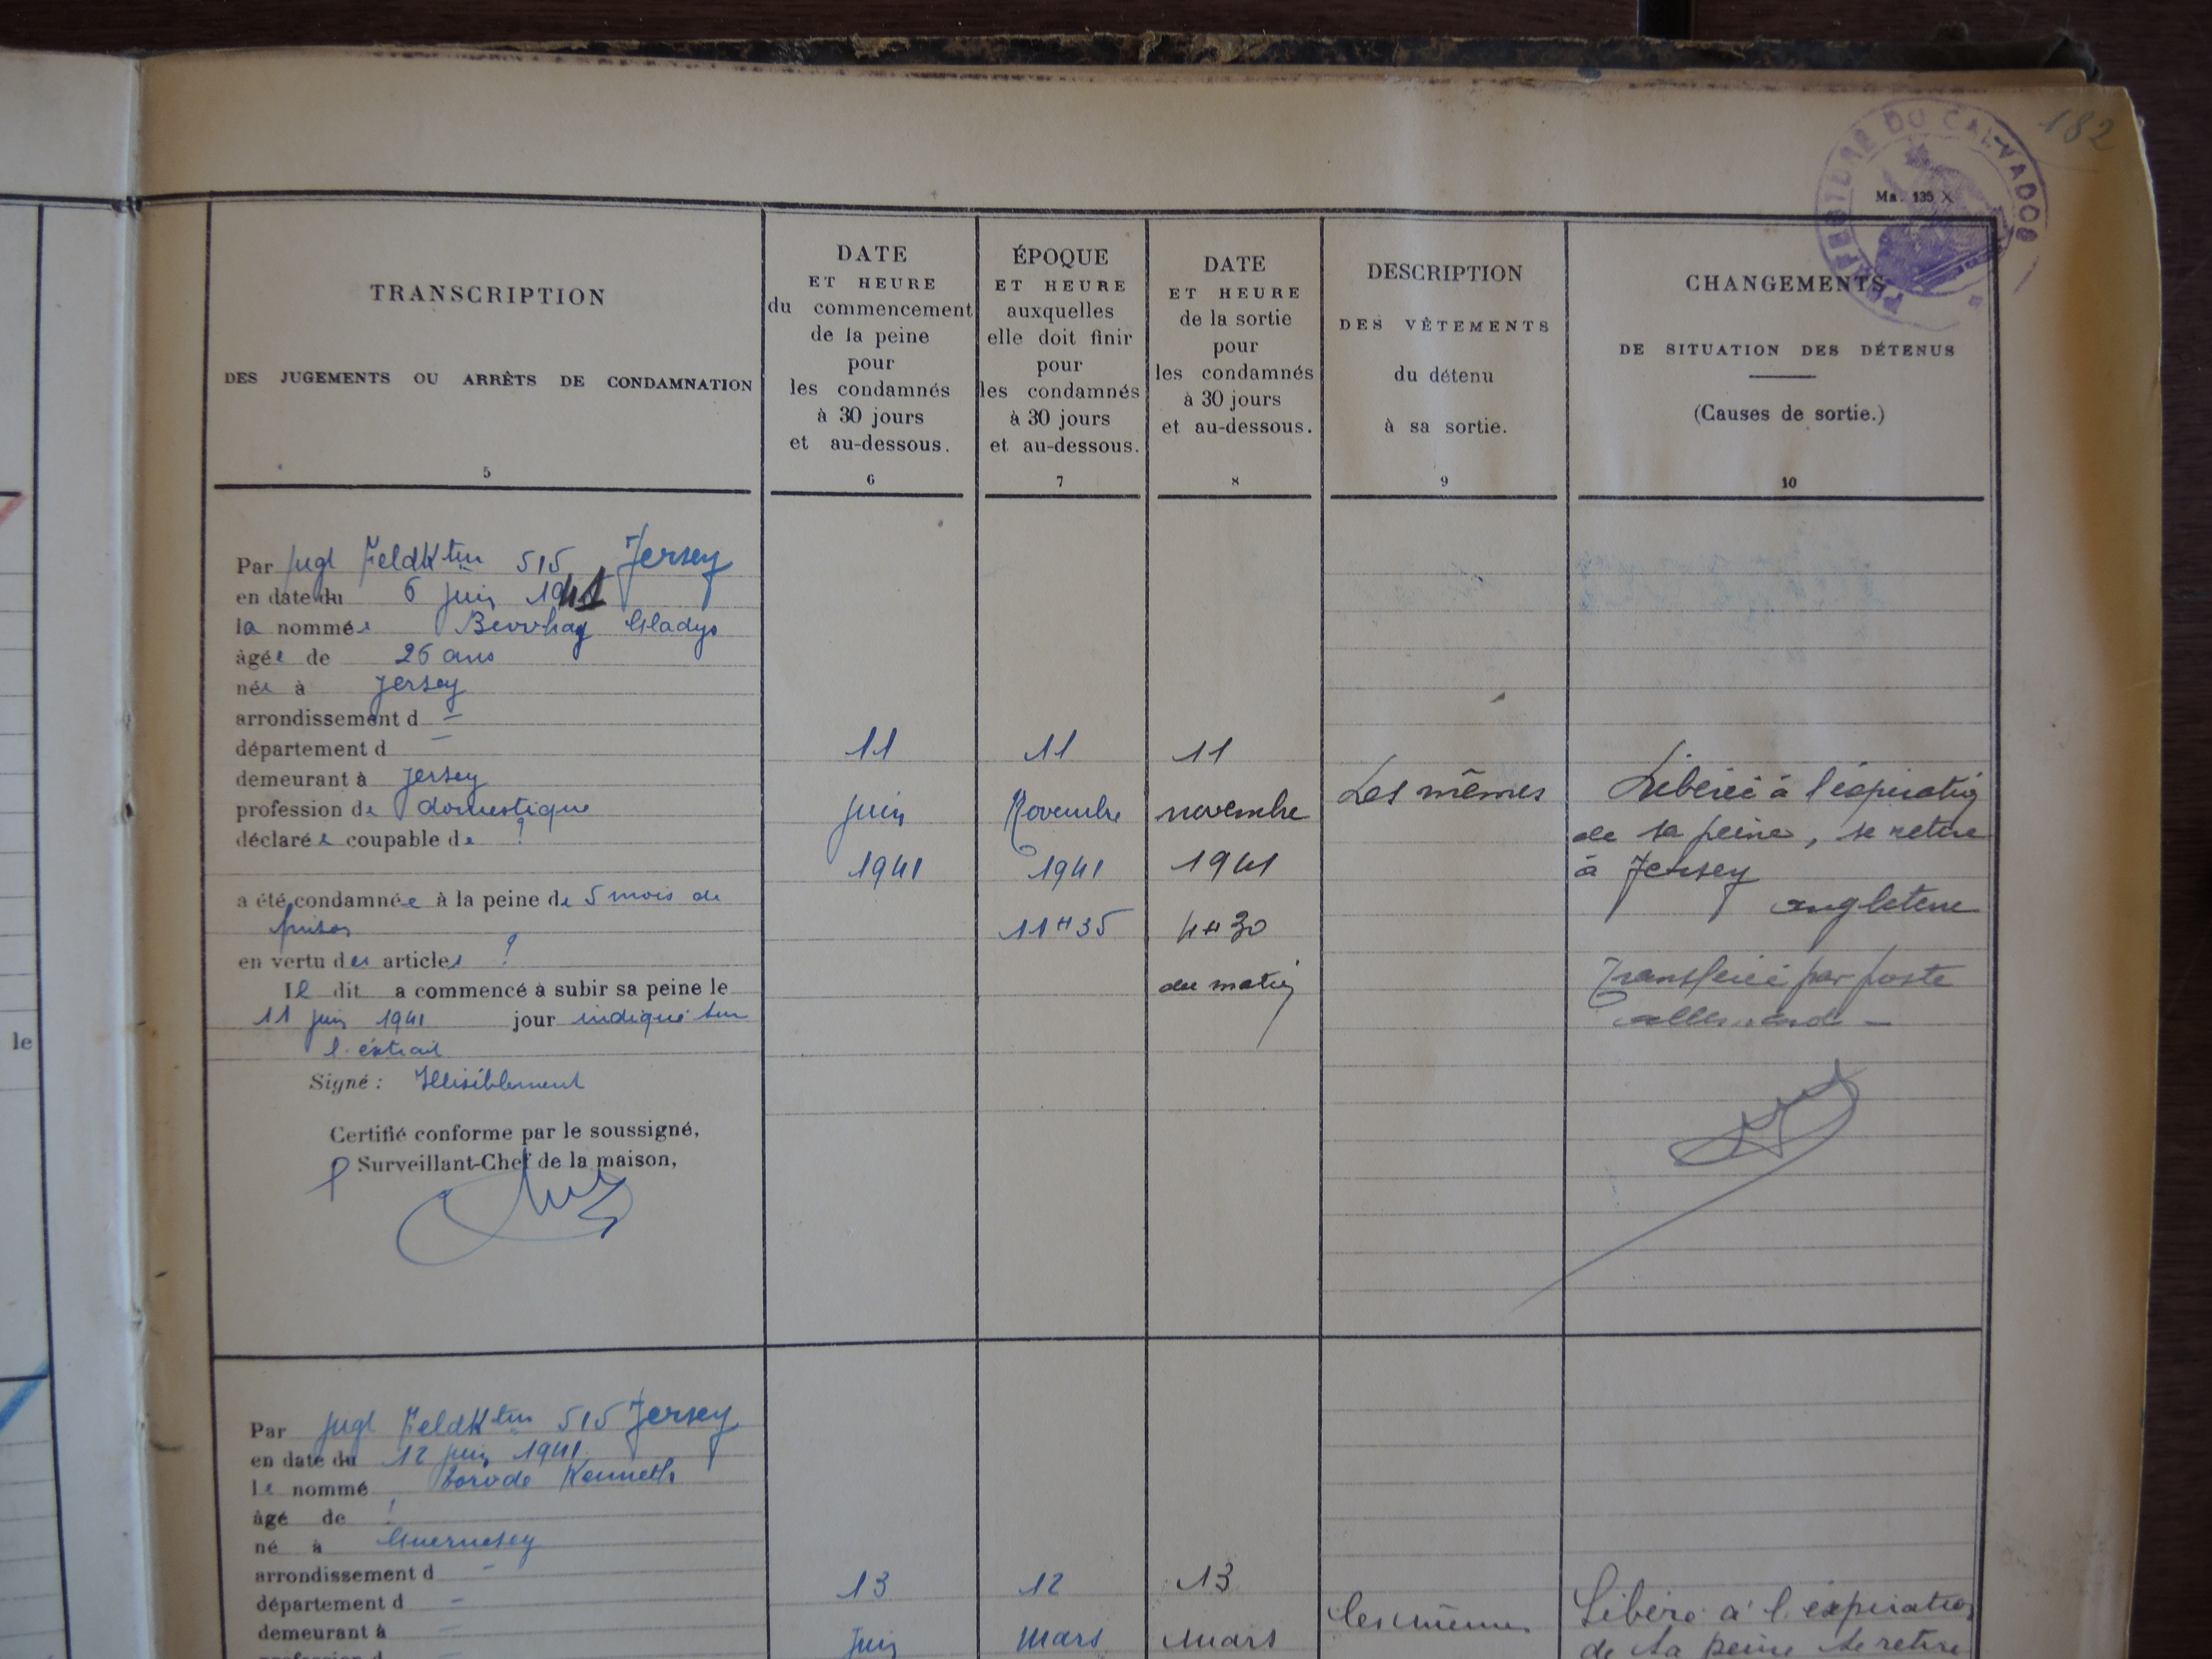 182
PRÉFECTURE DU CALVADOS
Ma. 135 X
TRANSCRIPTION
DES JUGEMENTS OU ARRÊTS DE CONDAMNATION
5
DATE
ET HEURE
du commencement
de la peine
pour
les condamnés
à 30 jours
et au-dessous.
6
ÉPOQUE
ET HEURE
auxquelles
elle doit finir
pour
les condamnés
à 30 jours
et au-dessous.
7
DATE
ET HEURE
de la sortie
pour
les condamnés
à 30 jours
et au-dessous.
8
DESCRIPTION
DES VÊTEMENTS
du détenu
à sa sortie.
9
CHANGEMENTS
DE SITUATION DES DÉTENUS
(Causes de sortie.)
10
le
Par jugt FeldKtur 515 Jersey
en date du 6 juin 1941
la nommée Gladys
âgée de 26 ans
née à Jersey
arrondissement d -
département d -
demeurant à Jersey
profession de domestique
déclarée coupable de ?
a été condamnée à la peine de 5 mois de
prison
en vertu des articles ?
Il dit a commencé à subir sa peine le
11 juin 1941 jour indiqué sur
l'extrait
Signé : Illisiblement
Certifié conforme par le soussigné,
P Surveillant-Chef de la maison,
11
juin
1941
11
Novembre
1941
11H35
11
novembre
1941
4H30
du matin
Les mêmes
Libérée à l'expiration
de sa peine, se retire
à Jersey
angleterre
Transférée par poste
allemand -
Par jugt FeldKtur 515 Jersey
en date du 12 juin 1941
le nommé Kenneth
âgé de !
né à Guernesey
arrondissement d -
département d -
demeurant à -
profession d
13
Juin
12
Mars
13
Mars
les mêmes
Libéré à l'expiration
de sa peine se retire